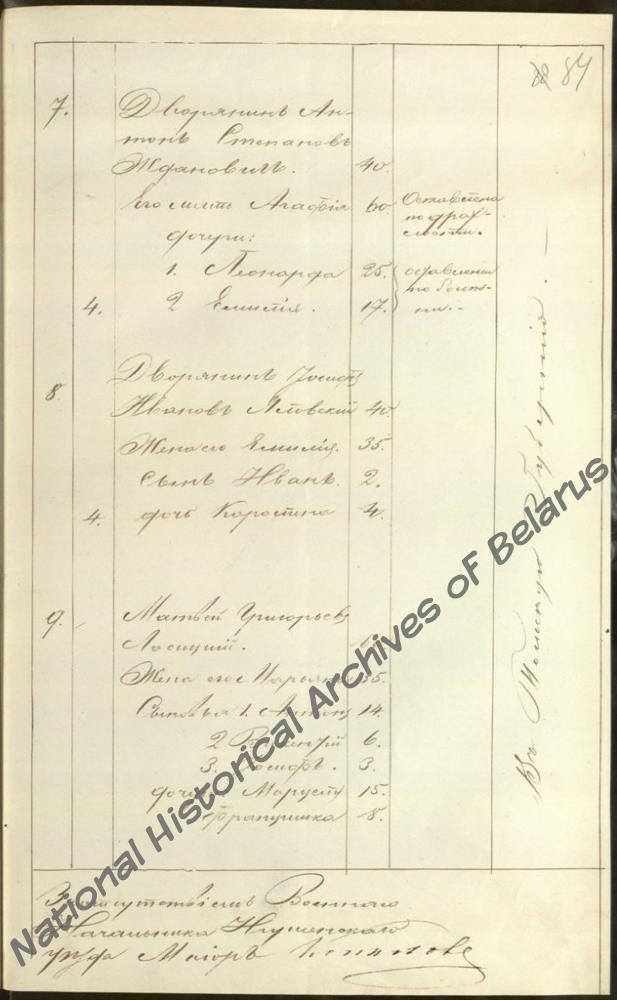 84
7. Дворянинъ Ан-
тонъ Степановъ
Ждановичъ. 40.
Его мать Агафія 60. Оставлена
по дрях-
лости.
дочери:
1. Леонарда 25. оставлены
по болѣз-
4. 2 Емилія. 17. ни.
8. Дворянинъ Іосифъ
Ивановъ 40
Жена его Емилія. 35.
Сынъ Иванъ. 2.
4. дочь 4.
9. Матвей Григорьевъ
Лосицкій.
Жена его Марьяна 35.
Сыновья 1. Антонъ 14.
2 6.
3. Іосифъ. 3.
15.
Францишка 8.
Въ Томскую Губернію.
За отсутствіемъ Военнаго
Начальника Игуменскаго
уѣзда Маіоръ
National Historical Archives of Belarus